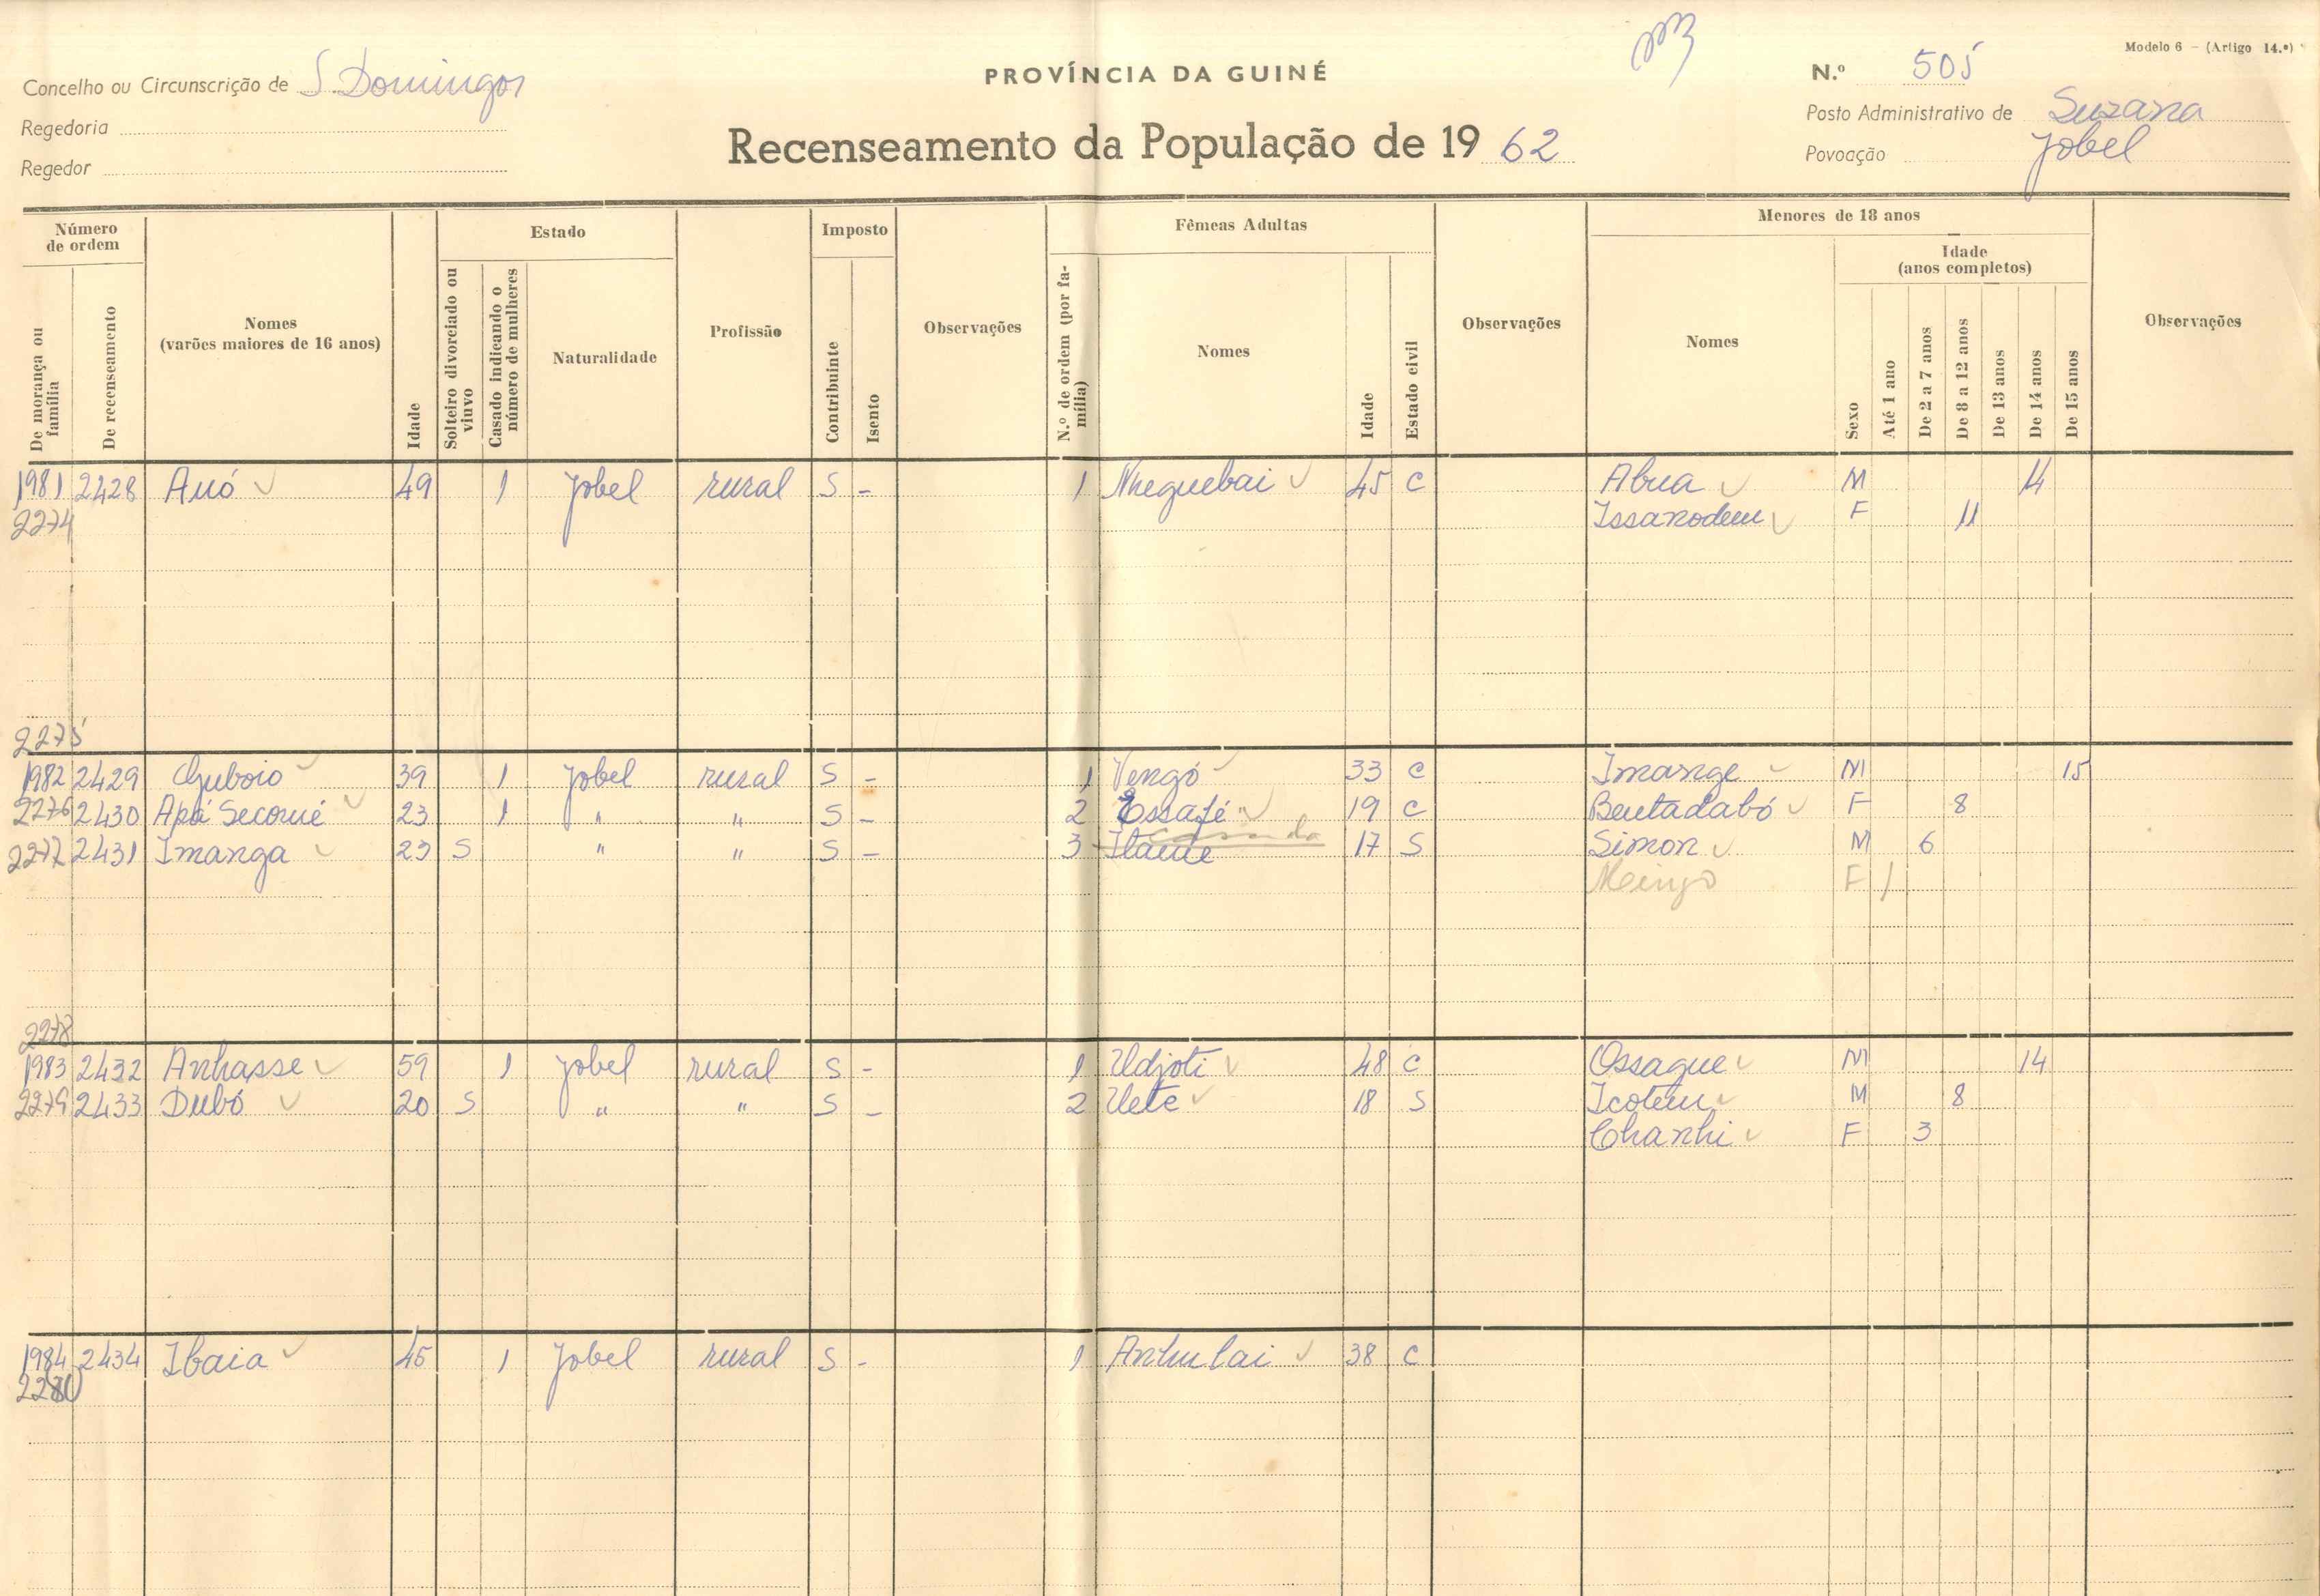 Modelo 6 - (Artigo 14.º)
Concelho ou Circunscrição de S. Domingos
PROVÍNCIA DA GUINÉ
N.º 505
Regedoria
Posto Administrativo de Suzana
Recenseamento da População de 1962
Regedor
Povoação Jobel
Número de ordem
De morança ou família
De recenseamento
Nomes (varões maiores de 16 anos)
Idade
Estado
Solteiro divorciado ou viuvo
Casado indicando o número de mulheres
Naturalidade
Profissão
Imposto
Contribuinte
Isento
Observações
N.º de ordem (por família)
Fêmeas Adultas
Nomes
Idade
Estado civil
Observações
Menores de 18 anos
Nomes
Sexo
Idade (anos completos)
Até 1 ano
De 2 a 7 anos
De 8 a 12 anos
De 13 anos
De 14 anos
De 15 anos
Observações
1981 2428 Auó 49 1 Jobel rural S - 1 Nheguebai 45 C Abua M 14
2274 Issanodem F 11
2275
1982 2429 39 1 Jobel rural S - 1 Vengó 33 C Imange M 15
2276 2430 Apá Secorué 23 1 " " S - 2 Essafé 19 C Bentadabó F 8
2277 2431 Imanga 23 S " " S - 3 Itaue 17 S Simon M 6
F 1
2278
1983 2432 Anhasse 59 1 Jobel rural S - 1 Udjoti 48 C Ossague M 14
2279 2433 Dubó 20 S " " S - 2 Uete 18 S Icotem M 8
Chanhi F 3
1984 2434 Ibaia 45 1 Jobel rural S - 1 Anhulai 38 C
2280